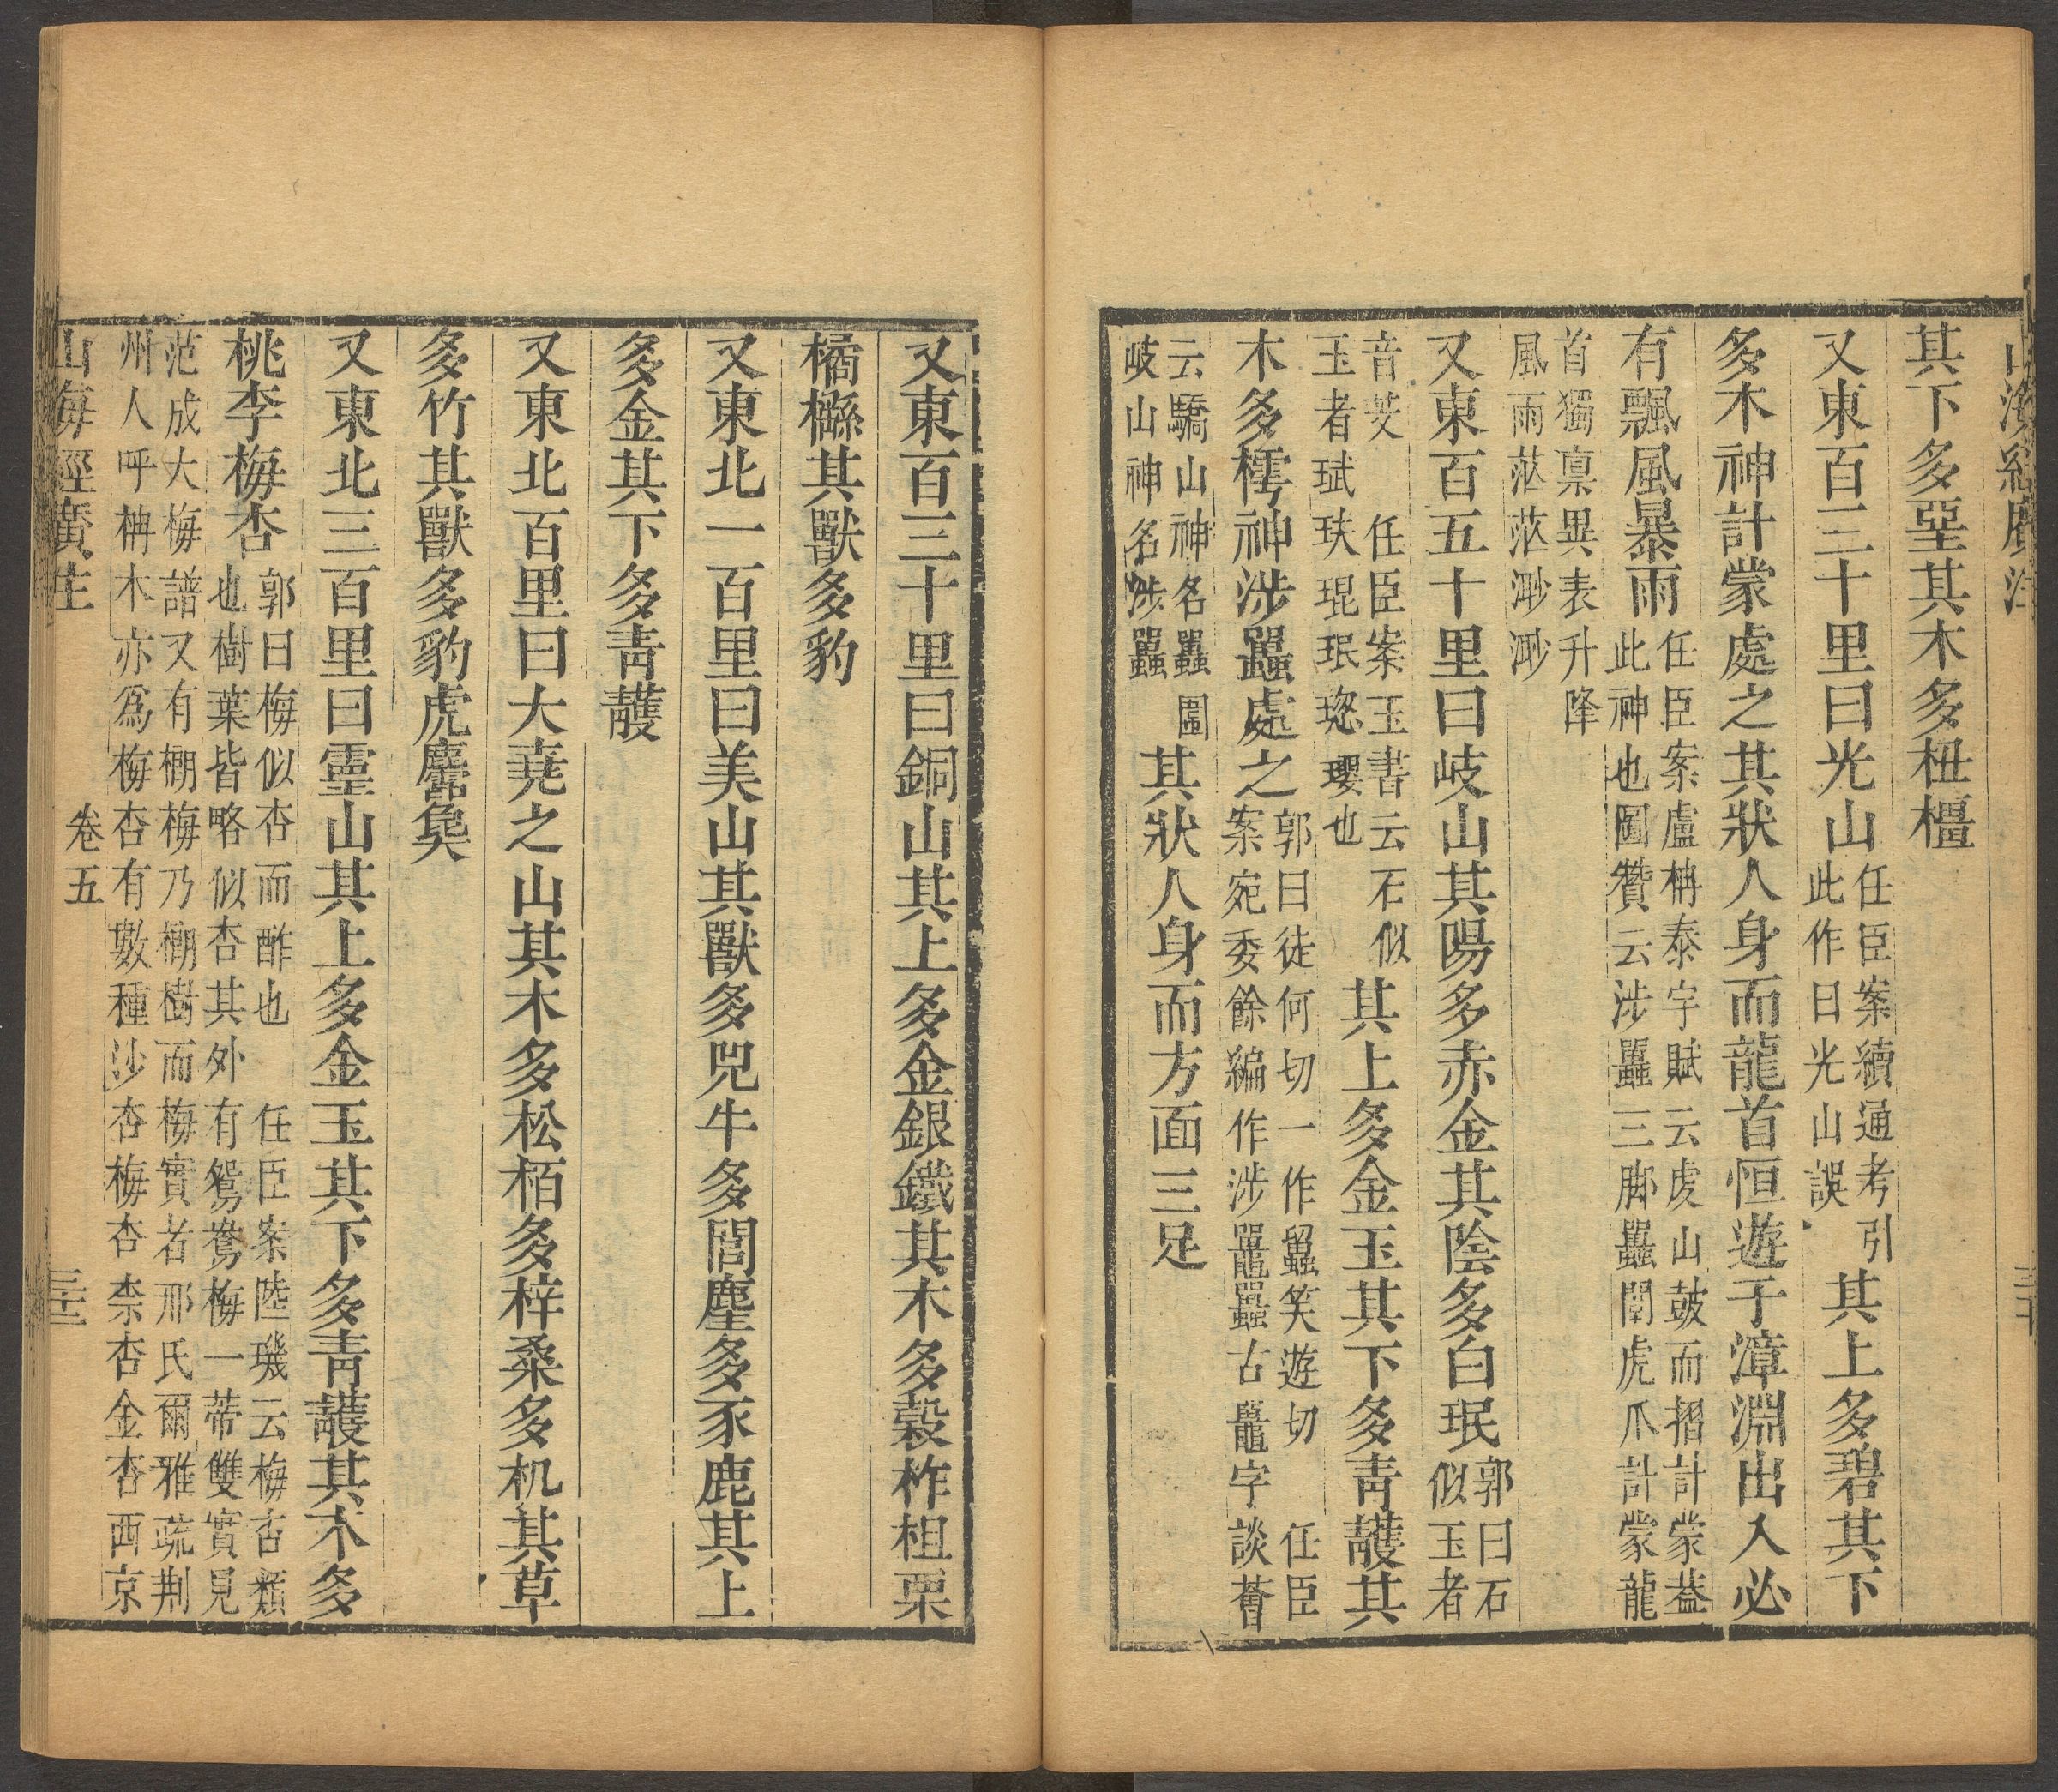 山海經廣注
其下多堊其木多杻橿
又東百三十里曰光山任臣案續通考引此作日光山誤其上多碧其下
多木神計蒙處之其狀人身而龍首恒遊于漳淵出入必
有飄風暴雨任臣案盧柟泰宇賦云虔山皷而招計蒙葢此神也圖贊云涉䖪三脚䖪圍虎爪計蒙龍
首獨稟異表升降風雨茫茫渺渺
又東百五十里曰岐山其陽多赤金其陰多白珉郭曰石似玉者
音旻 任臣案玉書云石似玉者珷玞琨珉璁瓔也其上多金玉其下多青雘其
木多樗神涉䖪處之郭曰徒何切一作䖪笑遊切 任臣案宛委餘編作涉鼉䖪古鼉字談薈
云驕山神名䖪圍岐山神名涉䖪其狀人身而方面三足
又東百三十里曰銅山其上多金銀鐵其木多穀柞柤栗
橘櫾其獸多豹
又東北一百里曰美山其獸多兕牛多閭麈多豕鹿其上
多金其下多青雘
又東北百里曰大堯之山其木多松栢多梓桑多机其草
多竹其獸多豹虎麢㚟
又東北三百里曰靈山其上多金玉其下多青雘其木多
桃李梅杏郭曰梅似杏而酢也 任臣案陸璣云梅杏類也樹葉皆略似杏其外有鴛鴦梅一蒂雙實見
范成大梅譜又有棚梅乃棚樹而梅實者邢氏爾雅疏荆州人呼柟木亦爲梅杏有數種沙杏梅杏柰杏金杏西京
山海經廣注 卷五